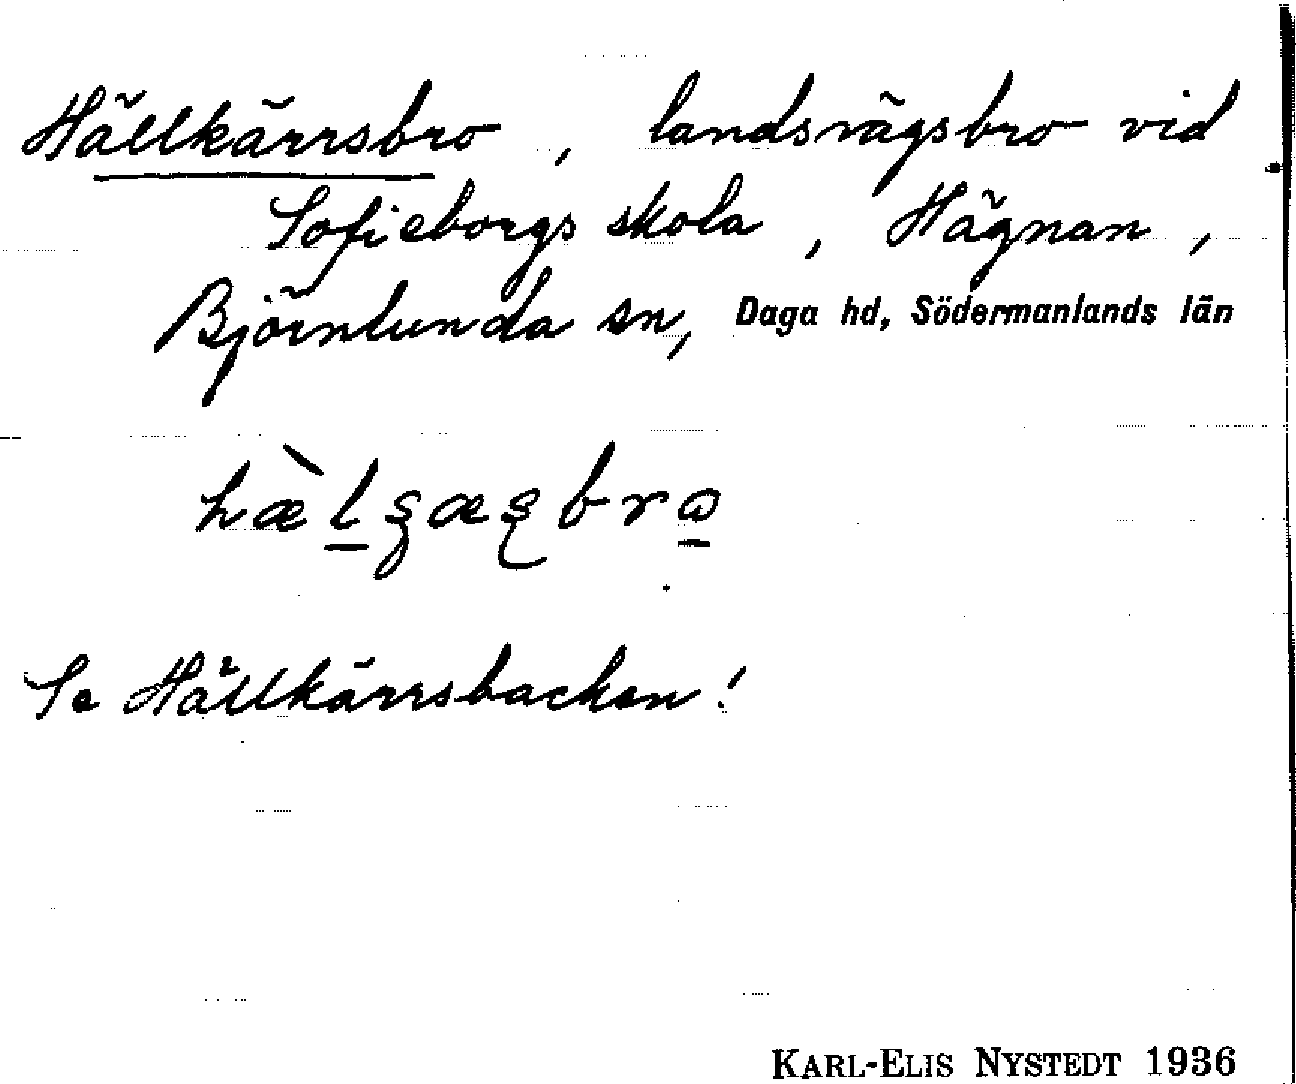 Hällkärrsbro, landsvägsbro vid
Sofieborgs skola, Hägnan,
Björnlunda sn, Daga hd, Södermanlands län
Se Hällkärrsbacken!
KARL-ELIS NYSTEDT 1936